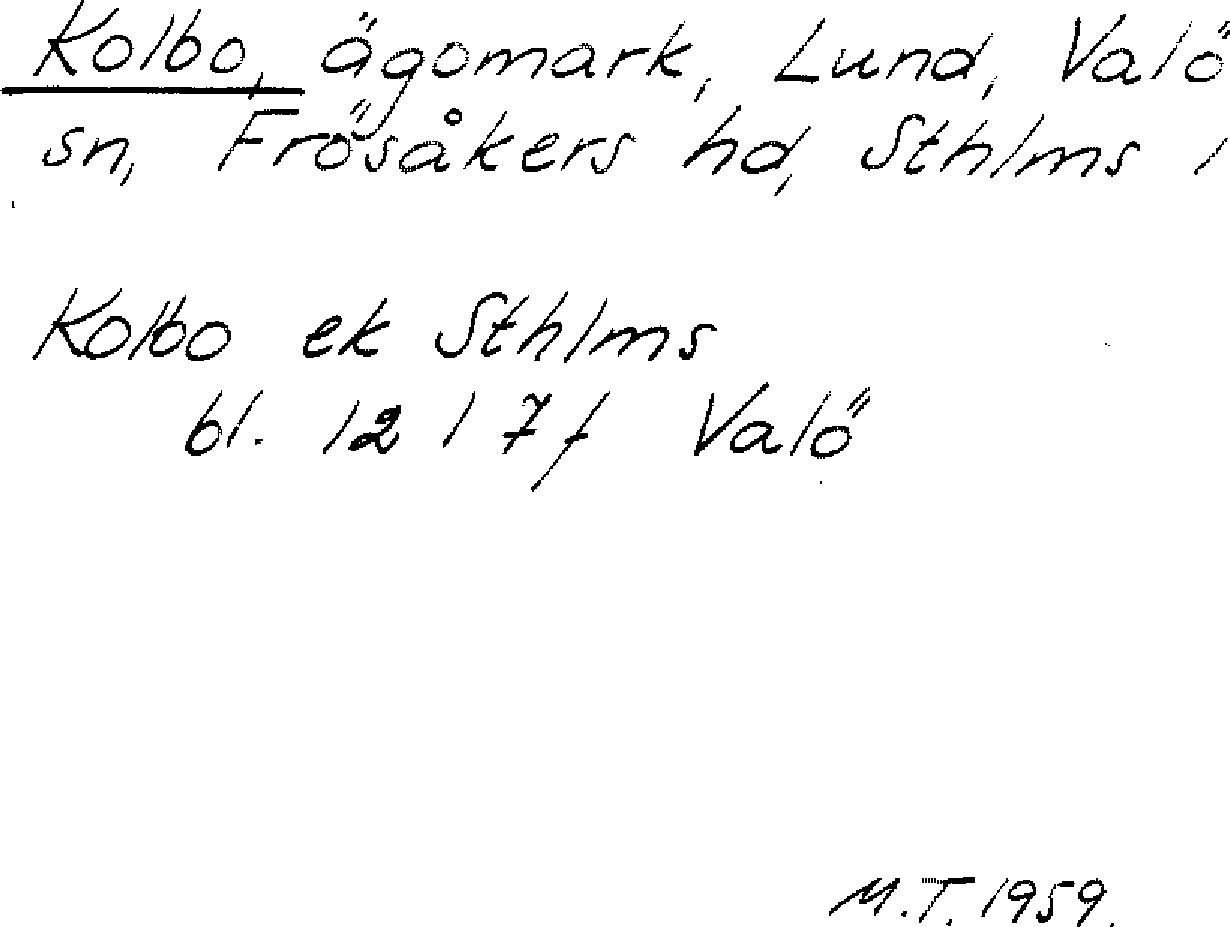 Kolbo, ägomark, Lund, Valö
sn, Frösåkers hd, Sthlms l
Kolbo ek Sthlms
bl. 12 1 7f Valö
M.T. 1959.